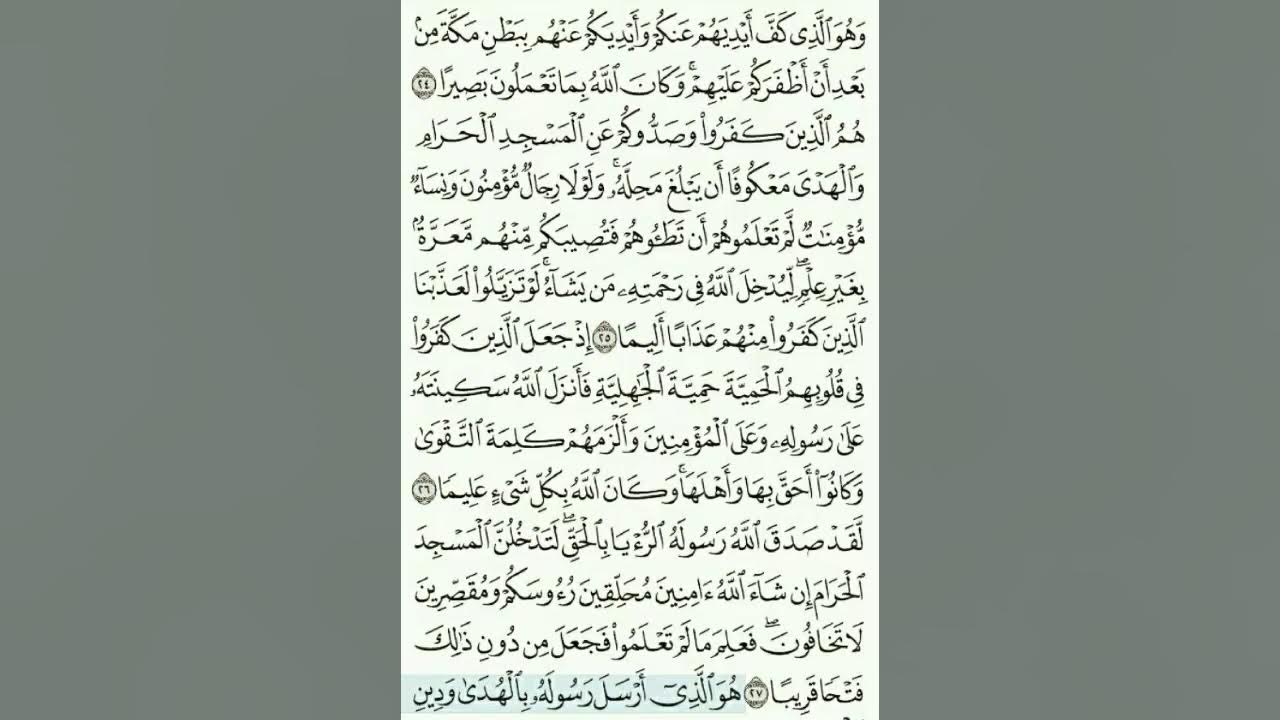 وَهُوَ ٱلَّذِى كَفَّ أَيْدِيَهُمْ عَنكُمْ وَأَيْدِيَكُمْ عَنْهُم بِبَطْنِ مَكَّةَ مِنۢ
بَعْدِ أَنْ أَظْفَرَكُمْ عَلَيْهِمْ ۚ وَكَانَ ٱللَّهُ بِمَا تَعْمَلُونَ بَصِيرًا ٢٤
هُمُ ٱلَّذِينَ كَفَرُوا۟ وَصَدُّوكُمْ عَنِ ٱلْمَسْجِدِ ٱلْحَرَامِ
وَٱلْهَدْىَ مَعْكُوفًا أَن يَبْلُغَ مَحِلَّهُۥ ۚ وَلَوْلَا رِجَالٌ مُّؤْمِنُونَ وَنِسَآءٌ
مُّؤْمِنَـٰتٌ لَّمْ تَعْلَمُوهُمْ أَن تَطَـُٔوهُمْ فَتُصِيبَكُم مِّنْهُم مَّعَرَّةٌۢ
بِغَيْرِ عِلْمٍ ۖ لِّيُدْخِلَ ٱللَّهُ فِى رَحْمَتِهِۦ مَن يَشَآءُ ۚ لَوْ تَزَيَّلُوا۟ لَعَذَّبْنَا
ٱلَّذِينَ كَفَرُوا۟ مِنْهُمْ عَذَابًا أَلِيمًا ٢٥ إِذْ جَعَلَ ٱلَّذِينَ كَفَرُوا۟
فِى قُلُوبِهِمُ ٱلْحَمِيَّةَ حَمِيَّةَ ٱلْجَـٰهِلِيَّةِ فَأَنزَلَ ٱللَّهُ سَكِينَتَهُۥ
عَلَىٰ رَسُولِهِۦ وَعَلَى ٱلْمُؤْمِنِينَ وَأَلْزَمَهُمْ كَلِمَةَ ٱلتَّقْوَىٰ
وَكَانُوٓا۟ أَحَقَّ بِهَا وَأَهْلَهَا ۚ وَكَانَ ٱللَّهُ بِكُلِّ شَىْءٍ عَلِيمًا ٢٦
لَّقَدْ صَدَقَ ٱللَّهُ رَسُولَهُ ٱلرُّءْيَا بِٱلْحَقِّ ۖ لَتَدْخُلُنَّ ٱلْمَسْجِدَ
ٱلْحَرَامَ إِن شَآءَ ٱللَّهُ ءَامِنِينَ مُحَلِّقِينَ رُءُوسَكُمْ وَمُقَصِّرِينَ
لَا تَخَافُونَ ۖ فَعَلِمَ مَا لَمْ تَعْلَمُوا۟ فَجَعَلَ مِن دُونِ ذَٰلِكَ
فَتْحًا قَرِيبًا ٢٧ هُوَ ٱلَّذِىٓ أَرْسَلَ رَسُولَهُۥ بِٱلْهُدَىٰ وَدِينِ